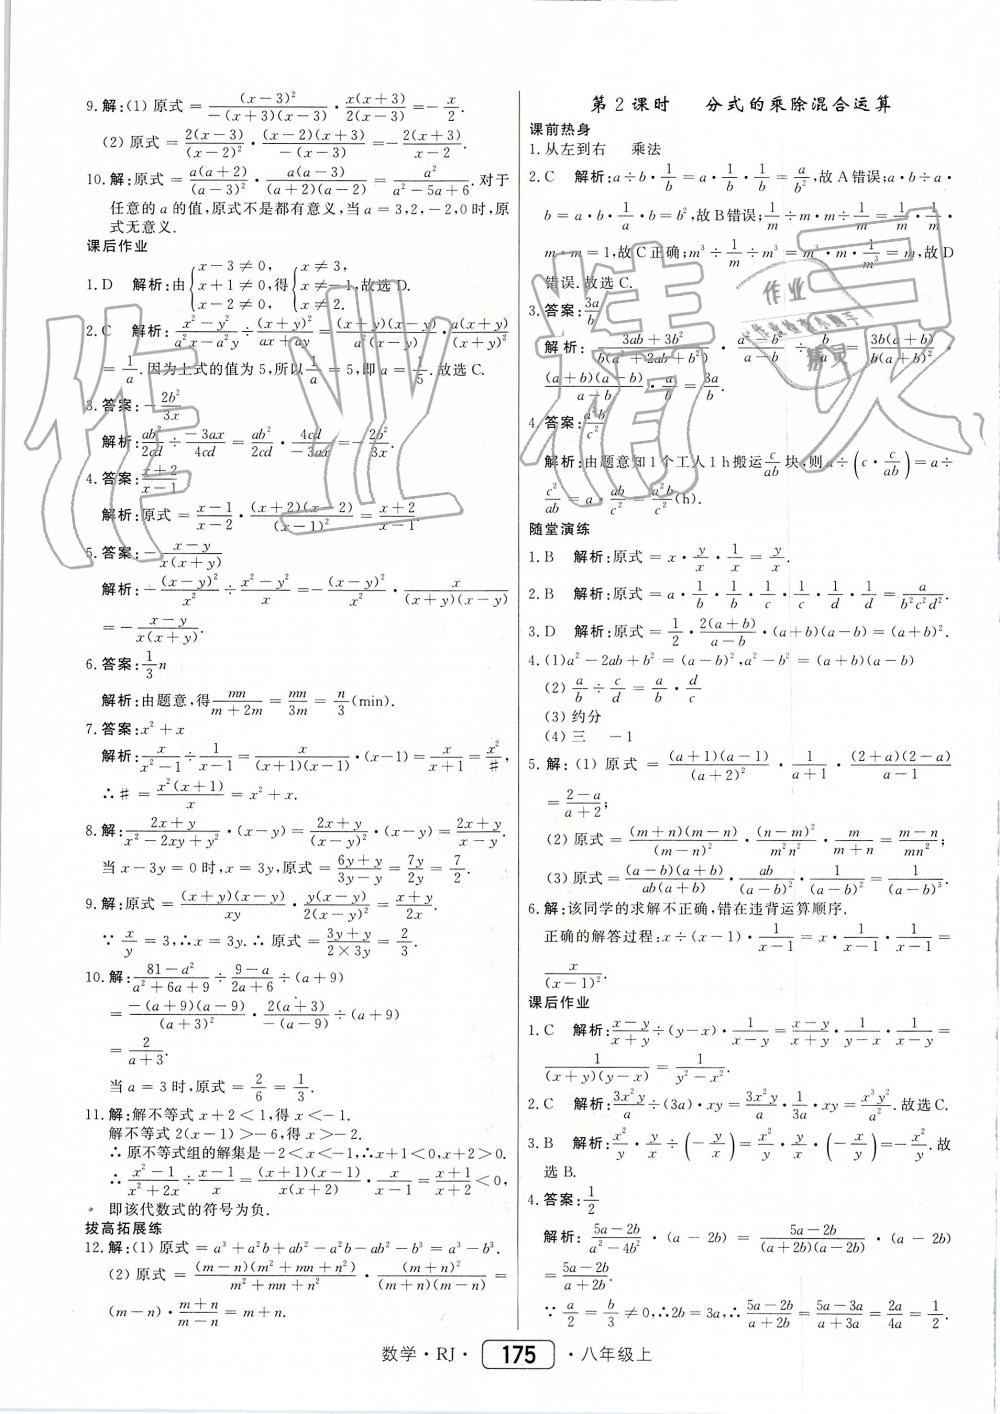 9.解:(1) 原式 = (x−3)²/[−(x+3)(x−3)] · x(x+3)/(x−3) = −x/2.
(2) 原式 = 2(x−3)/(x−2)² · (x−2)(x+3)/[−(x−3)] = −2(x+3)/(x−2).
10.解:原式 = a(a+2)/(a−3)² · a(a−3)/[(a+2)(a−2)] = a²/(a²−5a+6). 对于
任意的 a 的值,原式不是都有意义,当 a=3,2,−2,0 时,原
式无意义.
课后作业
1.D 解析:由{x−3≠0, x+1≠0, x−2≠0,得{x≠3, x≠−1, x≠2.故选 D.
2.C 解析:(x²−y²)/(a²x−a²y) ÷ (x+y)²/(ax+ay) = (x+y)(x−y)/[a²(x−y)] · a(x+y)/(x+y)²
= 1/a. 因为上式的值为 5,所以 1/a = 5,即 a = 1/5. 故选 C.
3.答案:−2b²/3x
解析:ab²/2cd ÷ −3ax/4cd = ab²/2cd · 4cd/−3ax = −2b²/3x.
4.答案:(x+2)/(x−1)
解析:原式 = (x−1)/(x−2) · (x+2)(x−2)/(x−1)² = (x+2)/(x−1).
5.答案:−(x−y)/[x(x+y)]
解析:−(x−y)²/x² ÷ (x²−y²)/x = −(x−y)²/x² · x/[(x+y)(x−y)]
= −(x−y)/[x(x+y)].
6.答案:1/3 n
解析:由题意,得 mn/(m+2m) = mn/3m = n/3 (min).
7.答案:x²+x
解析:x/(x²−1) ÷ 1/(x−1) = x/[(x+1)(x−1)] · (x−1) = x/(x+1) = x²/#,
∴# = x²(x+1)/x = x²+x.
8.解:(2x+y)/(x²−2xy+y²) · (x−y) = (2x+y)/(x−y)² · (x−y) = (2x+y)/(x−y).
当 x−3y=0 时,x=3y,原式 = (6y+y)/(3y−y) = 7y/2y = 7/2.
9.解:原式 = (x+y)(x−y)/xy · y(x−y)/[2(x−y)²] = (x+y)/2x.
∵ x/y = 3,∴x=3y.∴原式 = (3y+y)/(2×3y) = 2/3.
10.解:(81−a²)/(a²+6a+9) ÷ (9−a)/(2a+6) ÷ (a+9)
= −(a+9)(a−9)/(a+3)² · 2(a+3)/[−(a−9)] ÷ (a+9)
= 2/(a+3).
当 a=3 时,原式 = 2/6 = 1/3.
11.解:解不等式 x+2<1,得 x<−1.
解不等式 2(x−1)>−6,得 x>−2.
∴ 原不等式组的解集是−2<x<−1,∴x+1<0,x+2>0.
∴ (x²−1)/(x²+2x) ÷ (x−1)/x = (x+1)(x−1)/[x(x+2)] · x/(x−1) = (x+1)/(x+2) <0,
即该代数式的符号为负.
拔高拓展练
12.解:(1) 原式 = a³+a²b+ab²−a²b−ab²−b³ = a³−b³.
(2) 原式 = (m−n)(m²+mn+n²)/(m²+mn+n²) · (m+n)²/[(m+n)(m−n)] =
(m−n) · (m+n)/(m−n) = m+n.
第 2 课时 分式的乘除混合运算
课前热身
1.从左到右 乘法
2.C 解析:a÷b·1/b = a·1/b·1/b = a/b²,故 A 错误;a·b÷a·
b = a·b·1/a·b = b²,故 B 错误;1/m÷m·m÷1/m = 1/m·1/m·
m·m = 1,故 C 正确;m³÷1/m÷m³ = m³·m·1/m³ = m,故 D
错误.故选 C.
3.答案:3a/b
解析:(3ab+3b²)/[b(a²+2ab+b²)] · (a²−b²)/(a−b) ÷ b/a = 3b(a+b)/[b(a+b)²] ·
(a+b)(a−b)/(a−b) · a/b = 3a/b.
4.答案:a²b/c²
解析:由题意知 1 个工人 1 h 搬运 c/ab 块,则 a÷(c·c/ab) = a÷
c²/ab = a·ab/c² = a²b/c² (h).
随堂演练
1.B 解析:原式 = x·y/x·1/x = y/x.
2.B 解析:原式 = a·1/b·1/b·1/c·1/c·1/d·1/d = a/(b²c²d²).
3.D 解析:原式 = 1/2·2(a+b)/(a−b)·(a+b)(a−b) = (a+b)².
4.(1)a²−2ab+b² = (a−b)²,a²−b² = (a+b)(a−b)
(2) a/b÷c/d = a/b·d/c
(3) 约分
(4) 三 −1
5.解:(1) 原式 = (a+1)(a−1)/(a+2)² · 1/(a+1) · (2+a)(2−a)/(a−1)
= (2−a)/(a+2);
(2) 原式 = (m+n)(m−n)/(m−n)² · (n−m)²/m²n² · m/(m+n) = (m−n)/mn²;
(3) 原式 = (a−b)(a+b)/[ab(a+b)] · ab/(a−b)² · 1/(a−b)² = 1/(a−b)³.
6.解:该同学的求解不正确,错在违背运算顺序.
正确的解答过程:x÷(x−1)·1/(x−1) = x·1/(x−1)·1/(x−1) =
x/(x−1)².
课后作业
1.C 解析:(x−y)/(x+y)÷(y−x)·1/(x−y) = (x−y)/(x+y)·1/(y−x)·1/(x−y) =
1/[(x+y)(y−x)] = 1/(y²−x²).
2.C 解析:3x²y/a÷(3a)·xy = 3x²y/a·1/3a·xy = x³y²/a². 故选 C.
3.B 解析:x²/y·y/x÷(−y/x) = x²/y·y/x·(−x/y) = −x²/y. 故
选 B.
4.答案:1/2
解析:(5a−2b)/(a²−4b²)·(a−2b) = (5a−2b)/[(a+2b)(a−2b)]·(a−2b)
= (5a−2b)/(a+2b).
∵ a/2 = b/3 ≠0,∴2b=3a,∴(5a−2b)/(a+2b) = (5a−3a)/(a+3a) = 2a/4a = 1/2.
数学·RJ· 175 ·八年级上
作业精灵